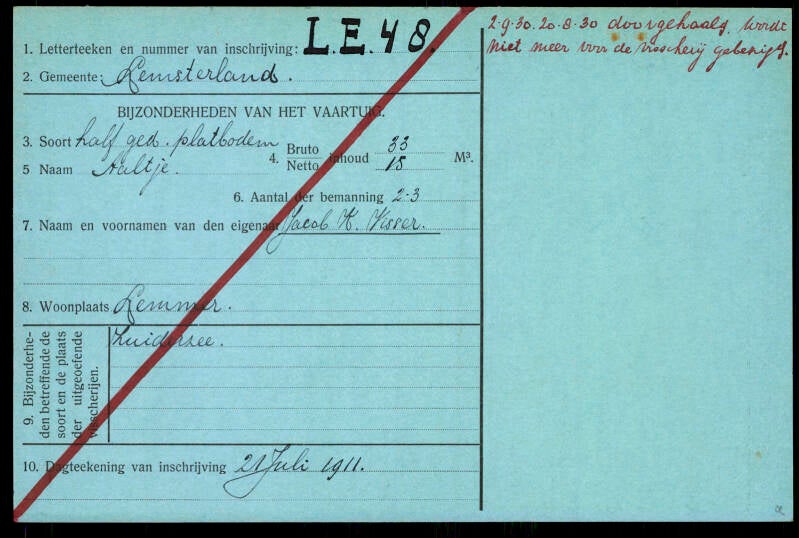 1. Letterteeken en nummer van inschrijving: L.E.48.
2. Gemeente: Lemsterland.
BIJZONDERHEDEN VAN HET VAARTUIG.
3. Soort half ged. platbodem
4. Bruto Netto inhoud 33 15 M³.
5 Naam Aaltje.
6. Aantal der bemanning 2-3
7. Naam en voornamen van den eigenaar Jacob K. Visser.
8. Woonplaats Lemmer.
9. Bijzonderhe-
den betreffende de
soort en de plaats
der uitgeoefende
visscherijen.
Zuiderzee.
10. Dagteekening van inschrijving 21 Juli 1911.
2-9-30. 20-8-30 doorgehaald, wordt
niet meer voor de visscherij gebezigd.